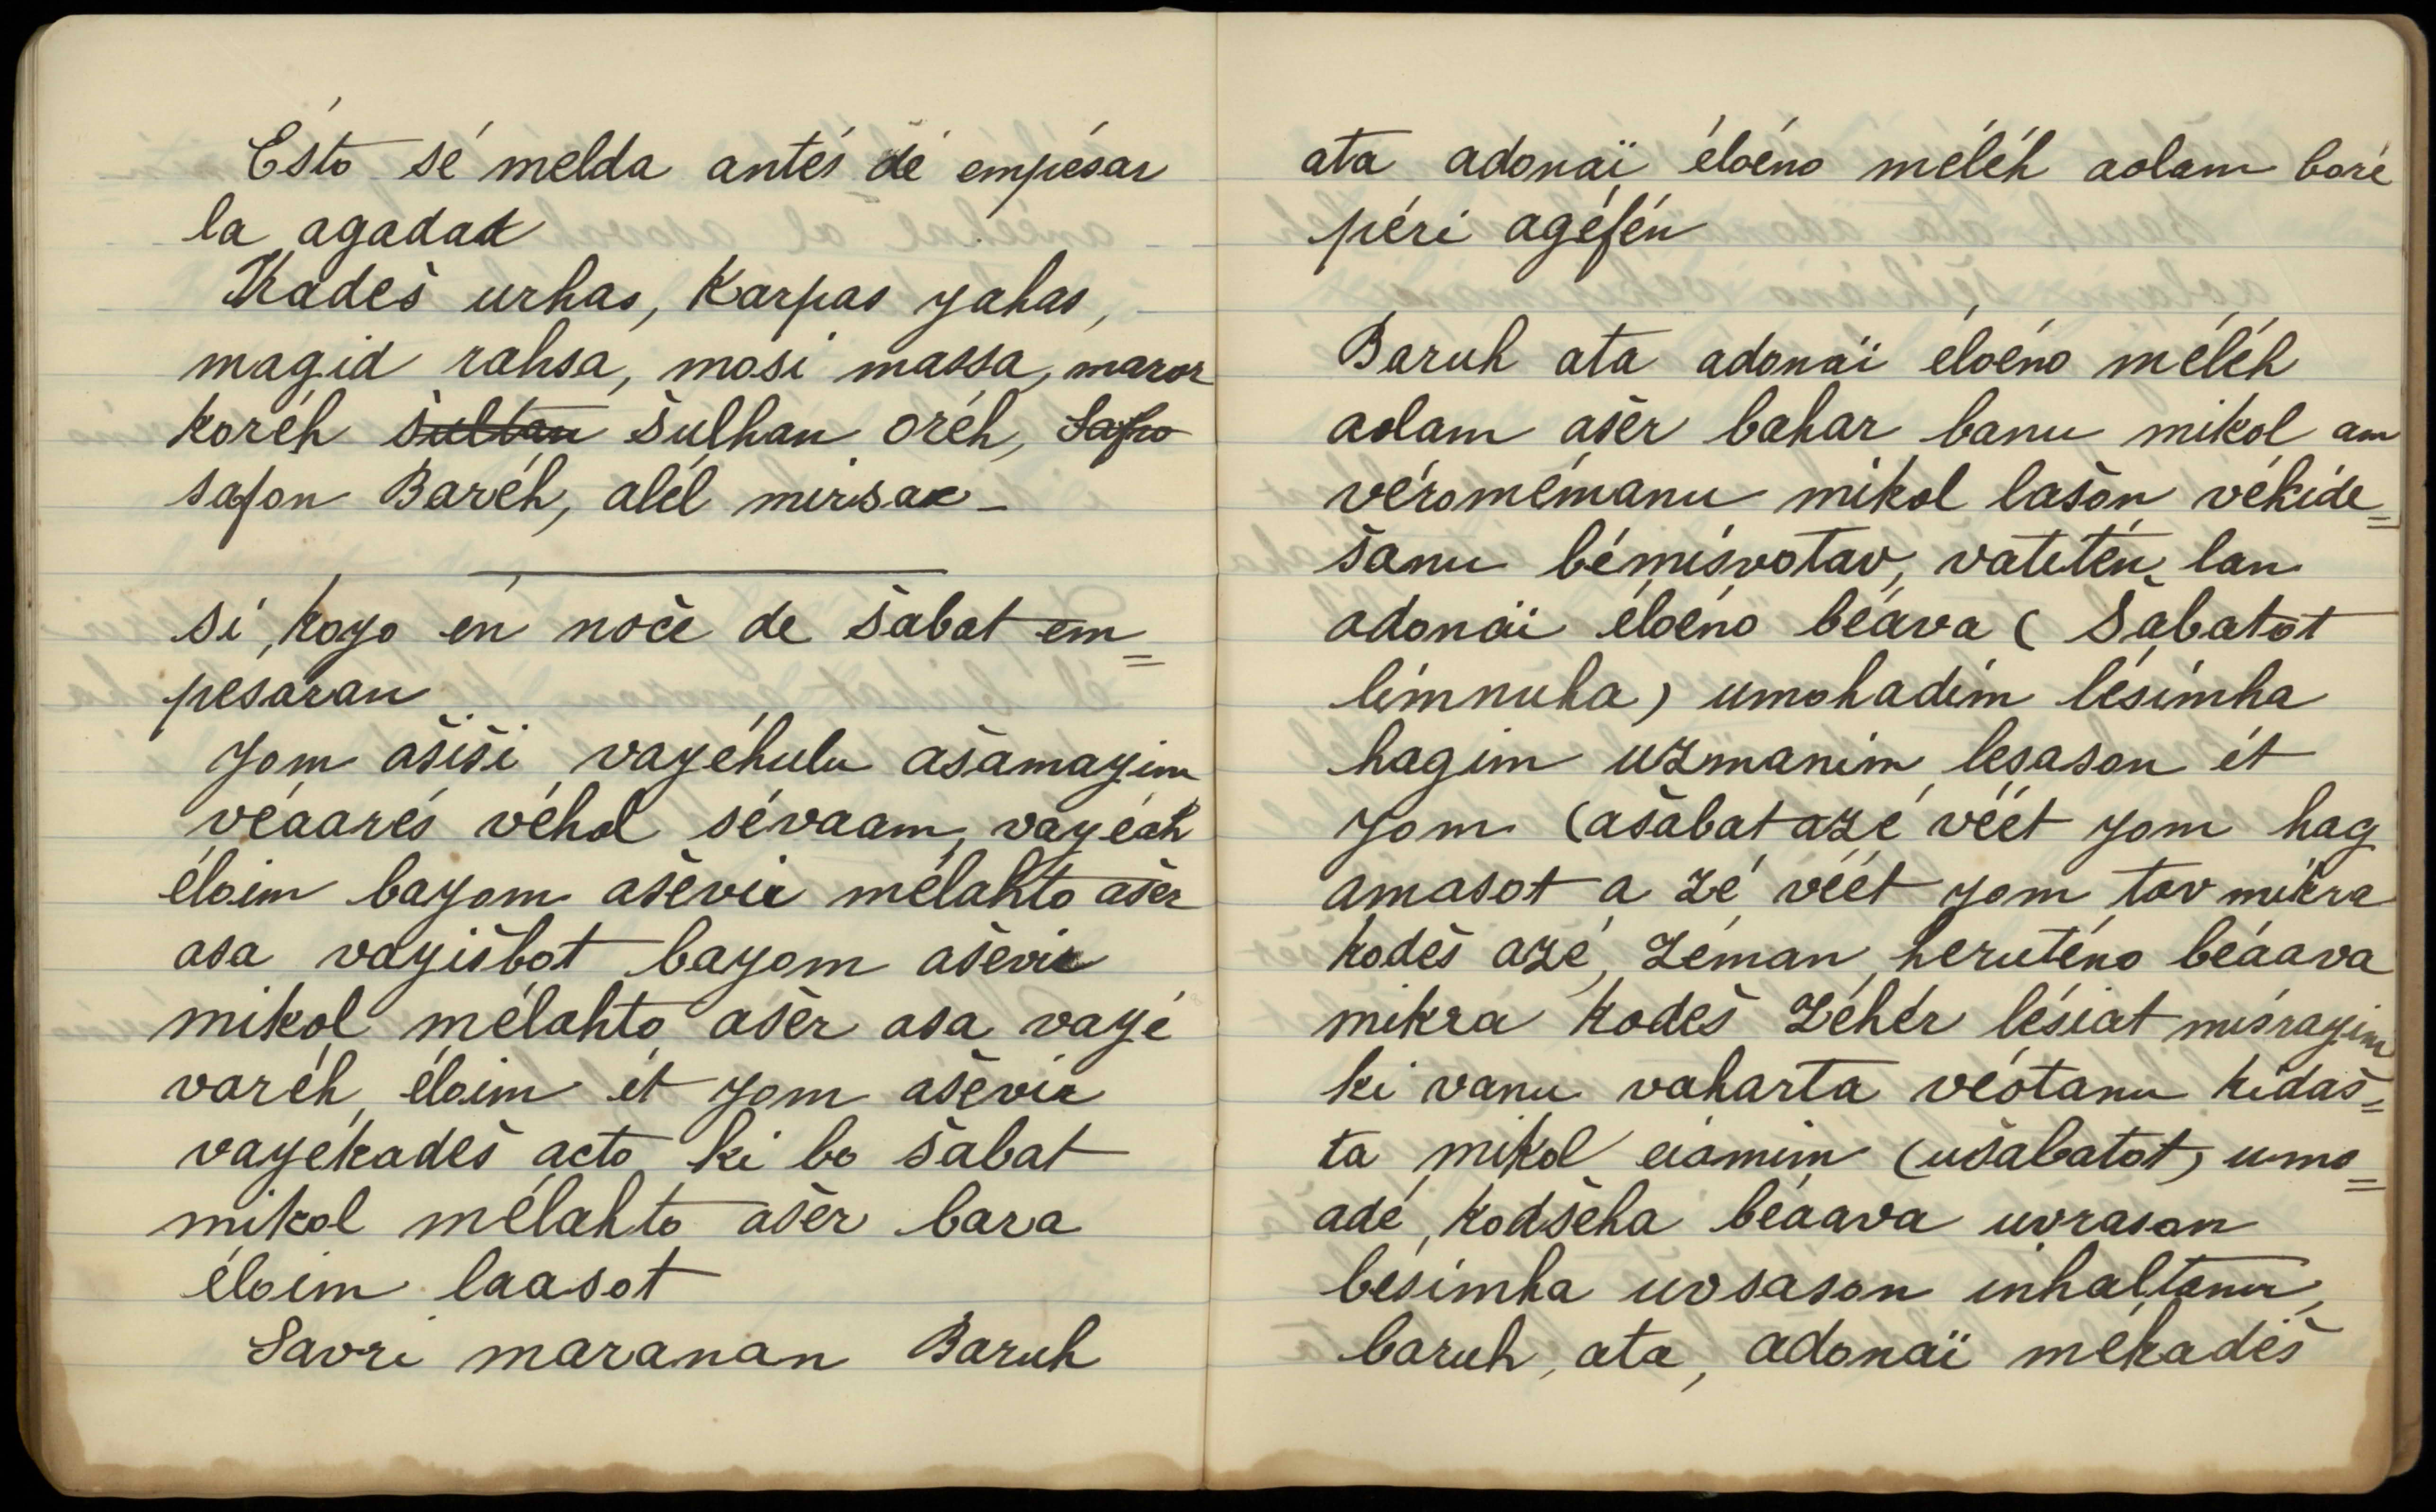 Ésto sé melda antés dé empésar
la agadat
Kadeš urhas, Karpas yahas,
magid rahsa, mosi massa, maror
koréh šultan šulhan oréh, Safro
safon Baréh, alél mirsac –
si, koyo én noče de šabat em=
pesaran
yom ašiši vayéhulu ašamayim
véaarés véhol sévaam, vayéah
éloim bayom aševii mélahto ašer
asa vayišbot bayom aševii
mikol mélahto ašér asa vayé
varéh, éloim ét yom aševii
vayékadeš acto ki bo šabat
mikol mélahto ašér bara
éloim laasot
Savri maranan Baruh
ata adonaï éloéno méléh aolam boré
péri agéfén
Baruh ata adonaï éloéno méléh
aolam ašér bahar banu mikol am
véromémanu mikol lašon vékide=
šanu bémisvotav, vatitén lan
adonaï éloéno béava (Šabatot
limnuha) umohadim lésimha
hagim uzmanim lesason ét
yom (ašabat azé véét yom hag
amasot a zé véét yom tov mikra
kodéš azé, Zéman heruténo béaava
mikra kodeš Zéhér lésiat misrayim
ki vanu vaharta véotanu kidaš=
ta mikol eiamim (ušabatot) umo=
adé, kodšeha béaava uvrason
bésimha uvsason inhaltanu,
baruh, ata, adonaï mékadéš